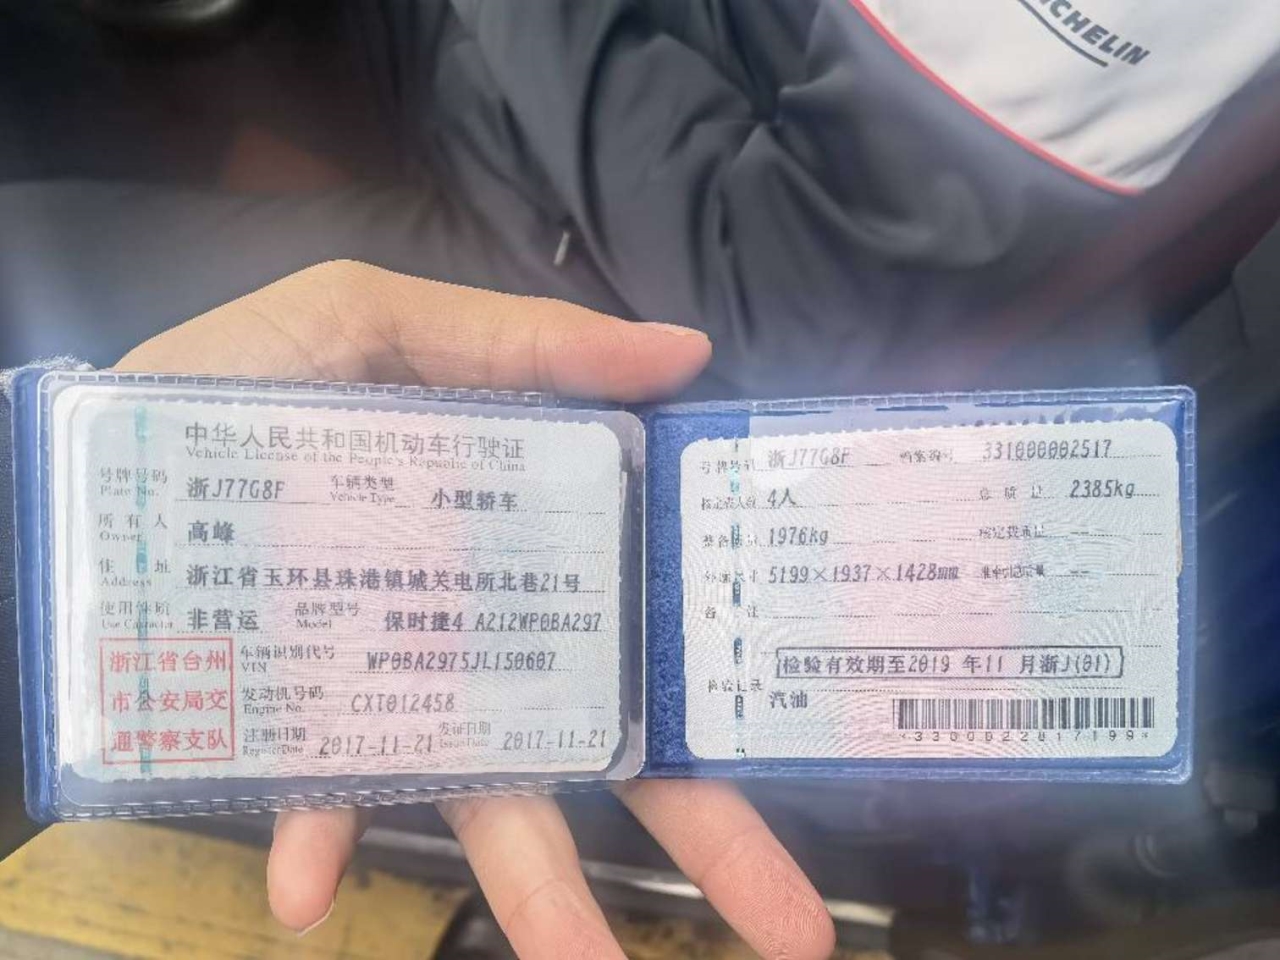 MICHELIN
中华人民共和国机动车行驶证
Vehicle License of the People's Republic of China
号牌号码 浙J77G8F 车辆类型 小型轿车
Plate No. Vehicle Type
所有人 高峰
Owner
住址 浙江省玉环县珠港镇城关电所北巷21号
Address
使用性质 非营运 品牌型号 保时捷4 A212WP0BA297
Use Character Model
浙江省台州
市公安局交
通警察支队
车辆识别代号 WP0BA2975JL150607
VIN
发动机号码 CXT012458
Engine No.
注册日期 2017-11-21 发证日期 2017-11-21
Register Date Issue Date
号牌号码 浙J77G8F 档案编号 331000002517
核定载人数 4人 总质量 2385kg
整备质量 1976kg 核定载质量 --
外廓尺寸 5199×1937×1428mm 准牵引总质量 --
备注
检验有效期至2019 年11 月浙J(01)
检验记录
汽油
*3300022817199*